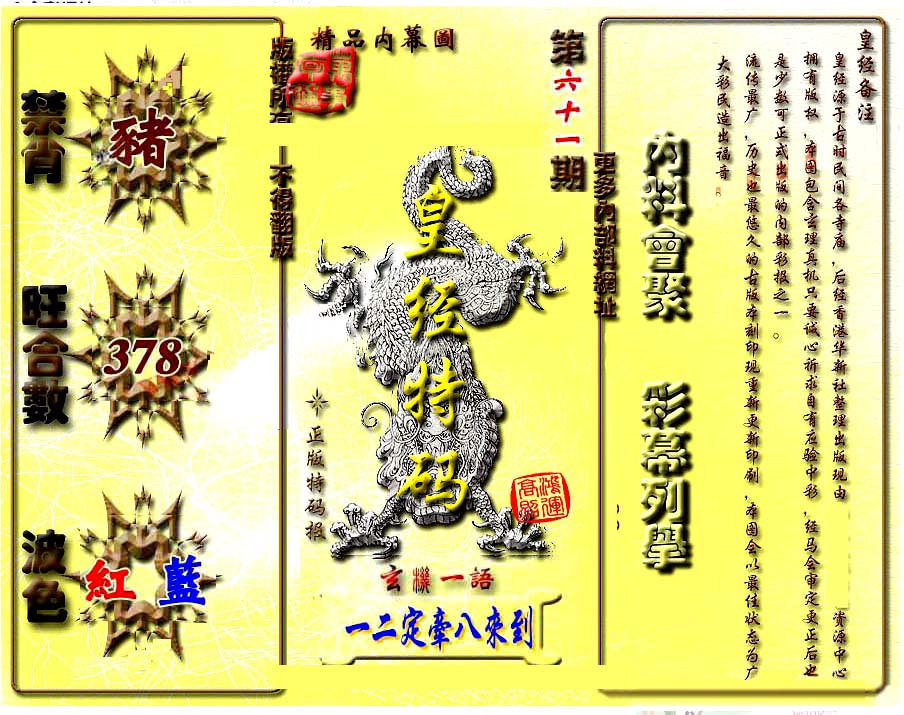 精品内幕圖
第六十一期
版權所有
不得翻版
更多內部料網址
禁肖
豬
旺合數
378
波色
紅 藍
皇经特码
正版特码报
鴻運高照
玄機一語
一二定牽八來到
内料會聚
彩幕列舉
皇经备注
皇经源于古时民间各寺庙,后经香港华新社整理出版现由 资源中心
拥有版权,本图包含玄理真机只要诚心祈求自有应验中彩,经马会审定更正后也
是少数可正式出版的内部彩报之一。
流传最广,历史也最悠久的古版本刻印现重新更新印刷,本图会以最佳状态为广
大彩民造出福音